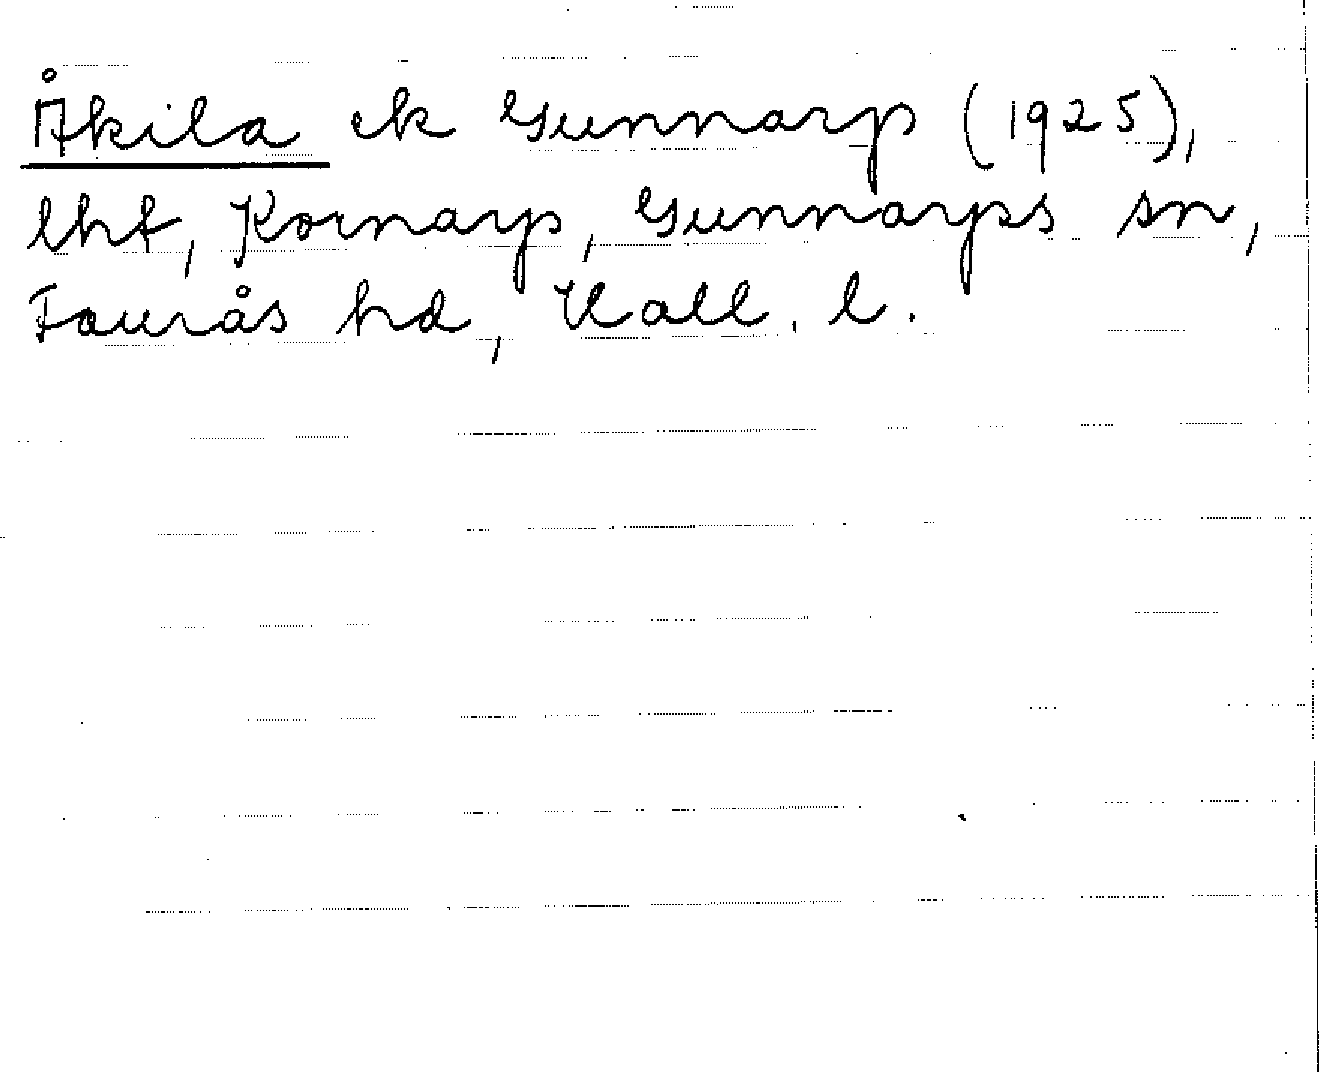 Åkila ek Gunnarp (1925),
lht, Kornarp, Gunnarps sn,
Faurås hd, Hall. l.